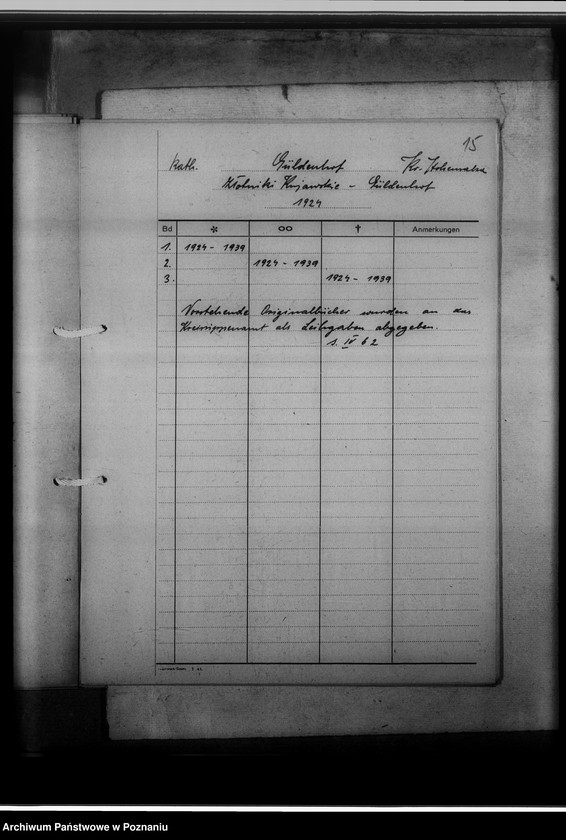 15
kath. Güldenhof Kr. Hohensalza
Złotniki Kujawskie - Güldenhof
1924
Bd * ∞ † Anmerkungen
1. 1924 - 1939
2. 1924 - 1939
3. 1924 - 1939
Vorstehende Originalbücher wurden an das
Kreissippenamt als Leihgaben abgegeben.
s. IV 62
Archiwum Państwowe w Poznaniu